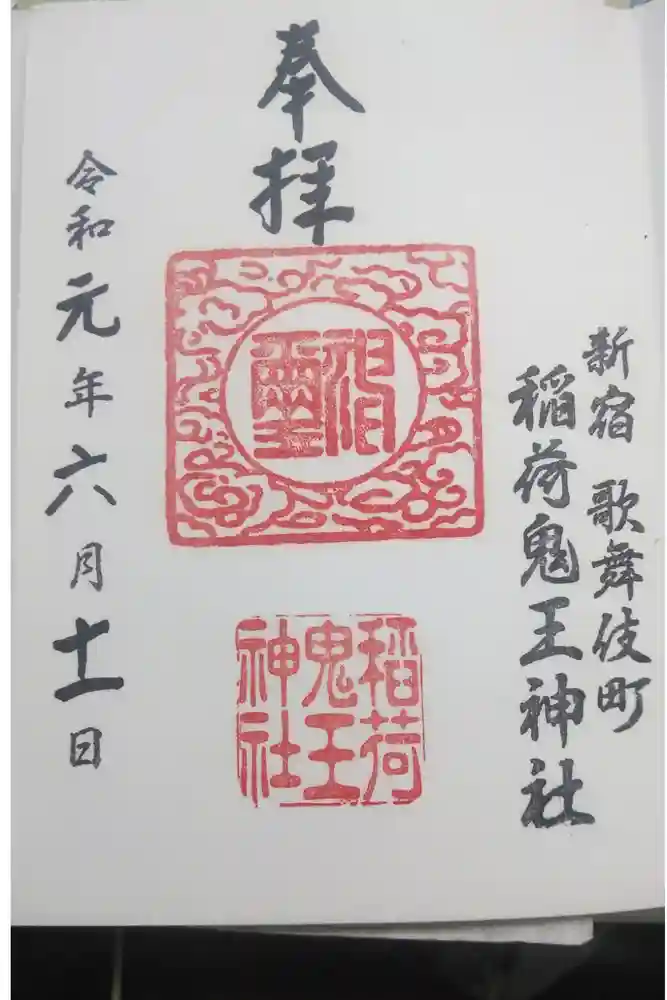 新宿 歌舞伎町
稲荷鬼王神社
奉拝
稲荷
鬼王
神社
令和元年六月十一日